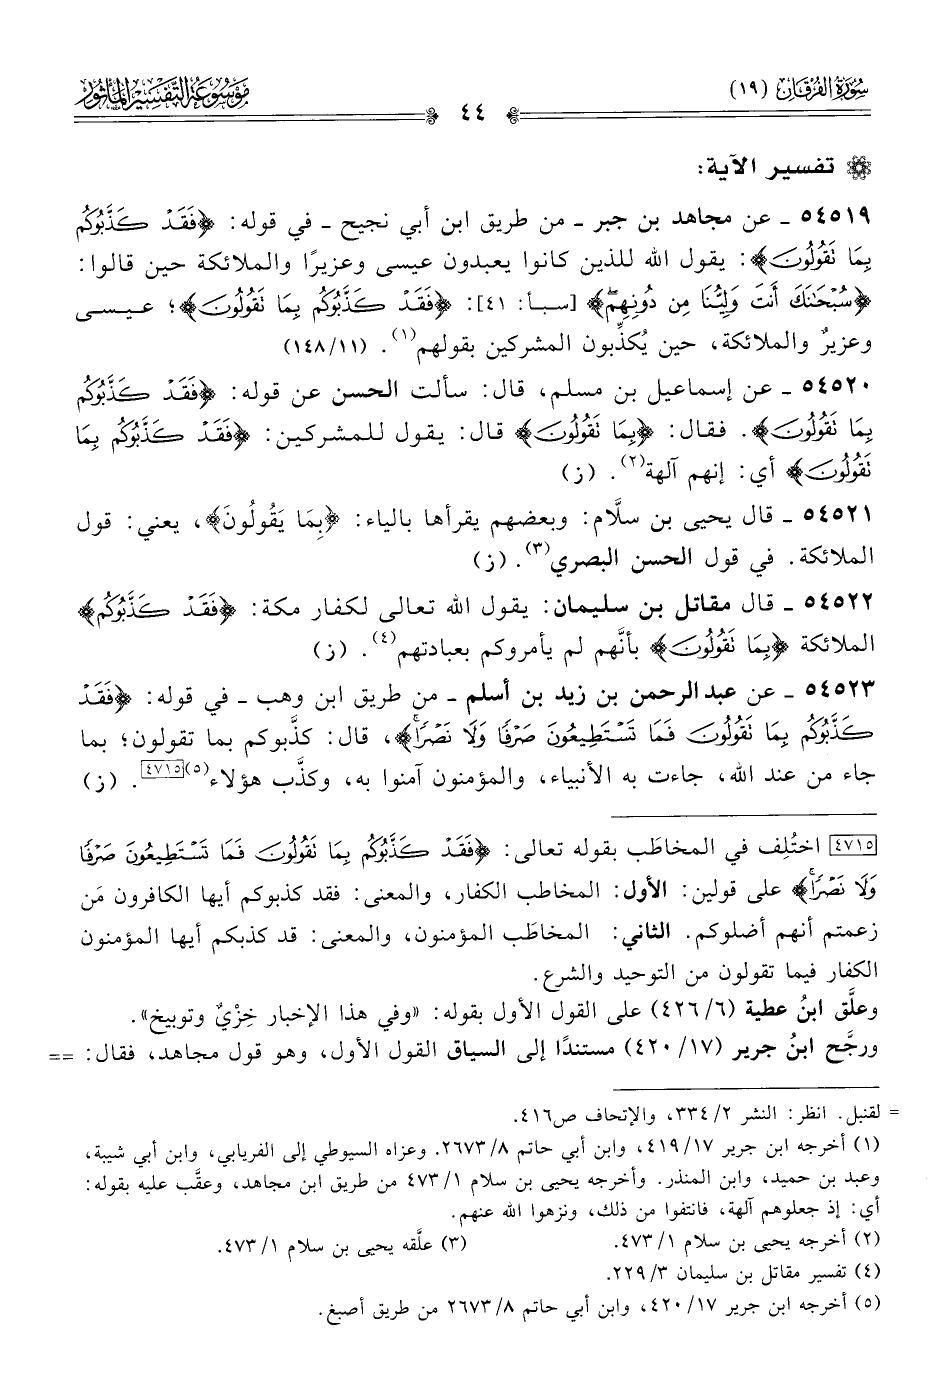 سُورَةُ الفُرْقَان (١٩)
٤٤
مَوْسُوعَة التَّفْسِيرِ المَأْثُور
تفسير الآية:
٥٤٥١٩ ـ عن مجاهد بن جبر ـ من طريق ابن أبي نجيح ـ في قوله: ﴿فَقَدْ كَذَّبُوكُم
بِمَا نَقُولُونَ﴾: يقول الله للذين كانوا يعبدون عيسى وعزيرًا والملائكة حين قالوا:
﴿سُبْحَٰنَكَ أَنتَ وَلِيُّنَا مِن دُونِهِمۖ﴾ [سبأ: ٤١]: ﴿فَقَدْ كَذَّبُوكُم بِمَا نَقُولُونَ﴾؛ عيسى
وعزيرٌ والملائكة، حين يُكذِّبون المشركين بقولهم(١). (١٤٨/١١)
٥٤٥٢٠ ـ عن إسماعيل بن مسلم، قال: سألت الحسن عن قوله: ﴿فَقَدْ كَذَّبُوكُم
بِمَا نَقُولُونَ﴾. فقال: ﴿بِمَا نَقُولُونَ﴾ قال: يقول للمشركين: ﴿فَقَدْ كَذَّبُوكُم بِمَا
نَقُولُونَ﴾ أي: إنهم آلهة(٢). (ز)
٥٤٥٢١ ـ قال يحيى بن سلَّام: وبعضهم يقرأها بالياء: ﴿بِمَا يَقُولُونَ﴾، يعني: قول
الملائكة. في قول الحسن البصري(٣). (ز)
٥٤٥٢٢ ـ قال مقاتل بن سليمان: يقول الله تعالى لكفار مكة: ﴿فَقَدْ كَذَّبُوكُم﴾
الملائكة ﴿بِمَا نَقُولُونَ﴾ بأنَّهم لم يأمروكم بعبادتهم(٤). (ز)
٥٤٥٢٣ ـ عن عبد الرحمن بن زيد بن أسلم ـ من طريق ابن وهب ـ في قوله: ﴿فَقَدْ
كَذَّبُوكُم بِمَا نَقُولُونَ فَمَا تَسْتَطِيعُونَ صَرْفًا وَلَا نَصْرًاۚ﴾، قال: كذَّبوكم بما تقولون؛ بما
جاء من عند الله، جاءت به الأنبياء، والمؤمنون آمنوا به، وكذَّب هؤلاء(٥)[٤٧١٥]. (ز)
[٤٧١٥] اختُلِف في المخاطَب بقوله تعالى: ﴿فَقَدْ كَذَّبُوكُم بِمَا نَقُولُونَ فَمَا تَسْتَطِيعُونَ صَرْفًا
وَلَا نَصْرًاۚ﴾ على قولين: الأول: المخاطب الكفار، والمعنى: فقد كذبوكم أيها الكافرون مَن
زعمتم أنهم أضلوكم. الثاني: المخاطَب المؤمنون، والمعنى: قد كذبكم أيها المؤمنون
الكفار فيما تقولون من التوحيد والشرع.
وعلَّق ابنُ عطية (٤٢٦/٦) على القول الأول بقوله: «وفي هذا الإخبار خِزْيٌ وتوبيخ».
ورجَّح ابنُ جرير (٤٢٠/١٧) مستندًا إلى السياق القول الأول، وهو قول مجاهد، فقال: ==
= لقنبل. انظر: النشر ٣٣٤/٢، والإتحاف ص٤١٦.
(١) أخرجه ابن جرير ٤١٩/١٧، وابن أبي حاتم ٢٦٧٣/٨. وعزاه السيوطي إلى الفريابي، وابن أبي شيبة،
وعبد بن حميد، وابن المنذر. وأخرجه يحيى بن سلام ٤٧٣/١ من طريق ابن مجاهد، وعقَّب عليه بقوله:
أي: إذ جعلوهم آلهة، فانتفوا من ذلك، ونزهوا الله عنهم.
(٢) أخرجه يحيى بن سلام ٤٧٣/١. (٣) علَّقه يحيى بن سلام ٤٧٣/١.
(٤) تفسير مقاتل بن سليمان ٢٢٩/٣.
(٥) أخرجه ابن جرير ٤٢٠/١٧، وابن أبي حاتم ٢٦٧٣/٨ من طريق أصبغ.